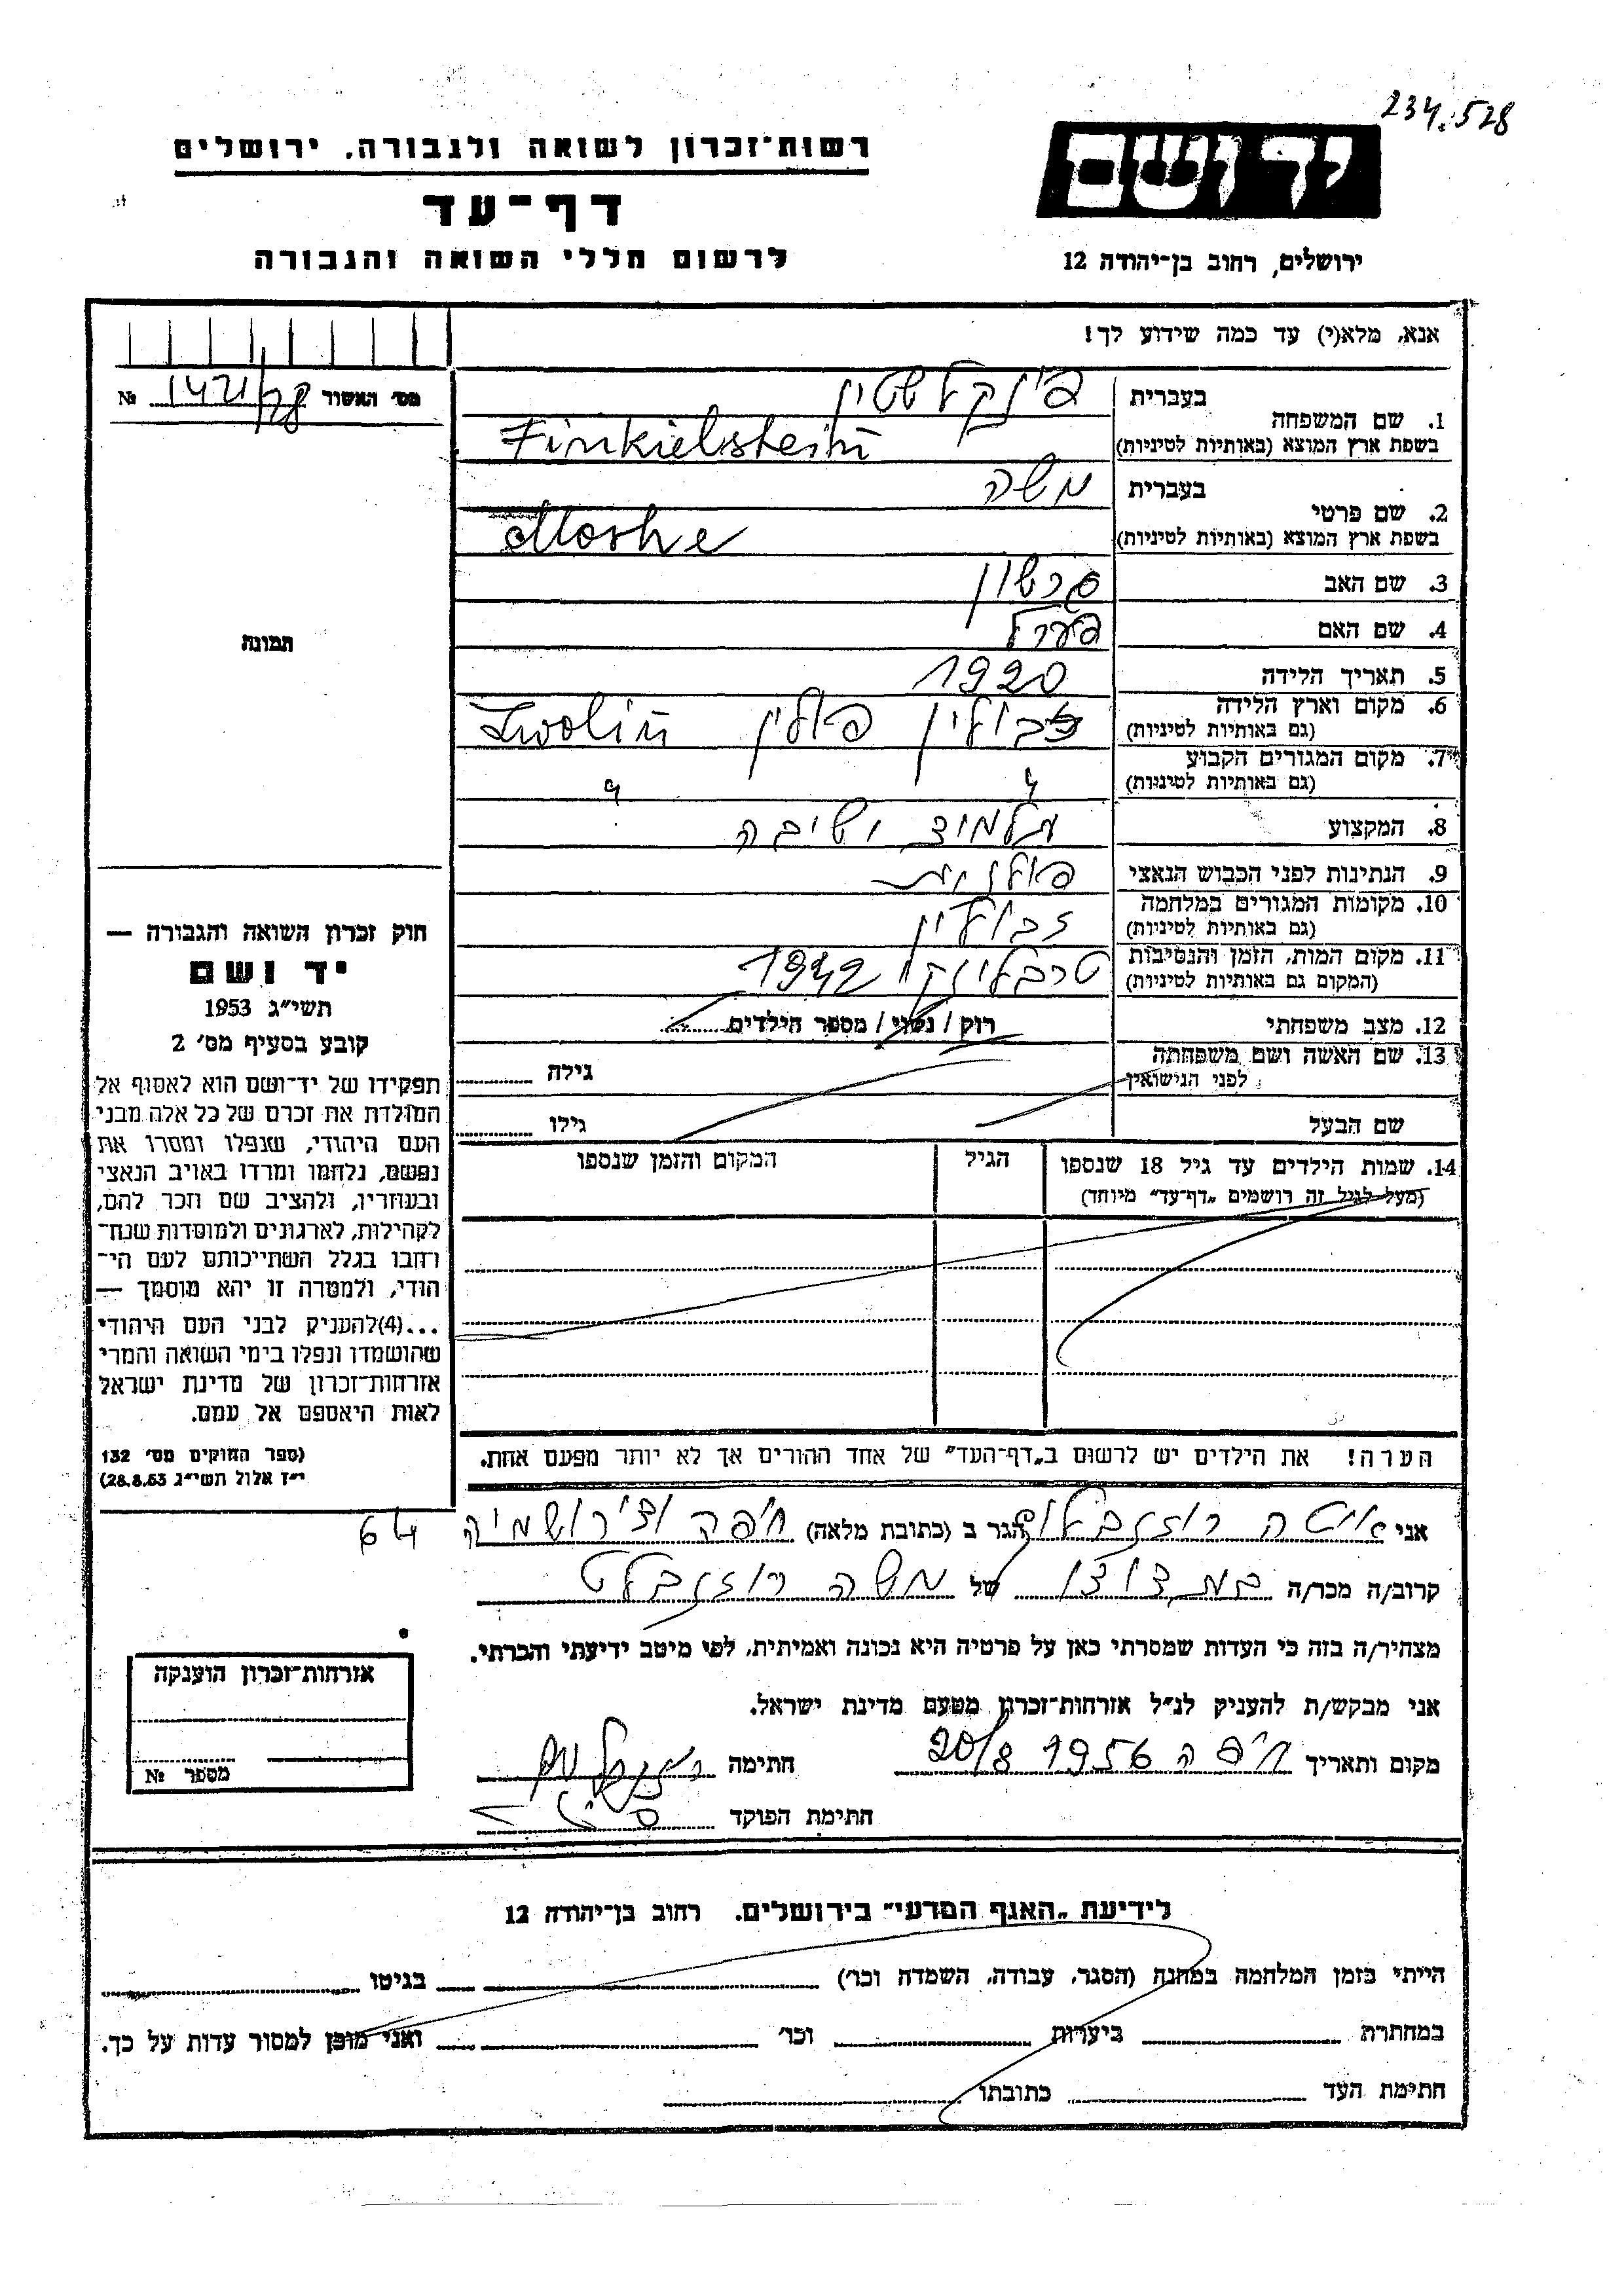 234.528
רשות־זכרון לשואה ולגבורה, ירושלים
יד ושם
דף־עד
לרשום חללי השואה והגבורה
ירושלים, רחוב בן־יהודה 12
אנא, מלא(י) עד כמה שידוע לך!
מס׳ האשור № 1421/28
1. שם המשפחה
בעברית פינקלשטין
בשפת ארץ המוצא (באותיות לטיניות) Finkielstein
2. שם פרטי
בעברית משה
בשפת ארץ המוצא (באותיות לטיניות) Moshe
3. שם האב גרשון
4. שם האם פערל
תמונה
5. תאריך הלידה 1920
6. מקום וארץ הלידה זבולין פולין Zwolin
(גם באותיות לטיניות)
7. מקום המגורים הקבוע
(גם באותיות לטיניות)
8. המקצוע תלמיד ישיבה
9. הנתינות לפני הכבוש הנאצי פולנית
10. מקומות המגורים במלחמה זבולין
(גם באותיות לטיניות)
11. מקום המות, הזמן והנסיבות טרבלינקי 1942
(המקום גם באותיות לטיניות)
12. מצב משפחתי רוק / נשוי / מספר הילדים
13. שם האשה ושם משפחתה גילה
לפני הנישואין
שם הבעל גילו
14. שמות הילדים עד גיל 18 שנספו הגיל המקום והזמן שנספו
(מעל לגיל זה רושמים „דף־עד” מיוחד)
חוק זכרון השואה והגבורה —
יד ושם
תשי״ג 1953
קובע בסעיף מס׳ 2
תפקידו של יד־ושם הוא לאסוף אל
המולדת את זכרם של כל אלה מבני
העם היהודי, שנפלו ומסרו את
נפשם, נלחמו ומרדו באויב הנאצי
ובעוזריו, ולהציב שם וזכר להם,
לקהילות, לארגונים ולמוסדות שנח־
רחבו בגלל השתייכותם לעם הי־
הודי, ולמטרה זו יהא מוסמך —
...(4)להעניק לבני העם היהודי
שהושמדו ונפלו בימי השואה והמרי
אזרחות־זכרון של מדינת ישראל
לאות היאספם אל עמם.
(ספר החוקים מס׳ 132
י״ז אלול תשי״ג 28.8.53)
הערה! את הילדים יש לרשום ב„דף־העד” של אחד ההורים אך לא יותר מפעם אחת.
אני איטה רוזנבלום הגר ב (כתובת מלאה) חיפה 64
קרוב/ה מכר/ה של משה
מצהיר/ה בזה כי העדות שמסרתי כאן על פרטיה היא נכונה ואמיתית, לפי מיטב ידיעתי והכרתי.
אני מבקש/ת להעניק לנ״ל אזרחות־זכרון מטעם מדינת ישראל.
מקום ותאריך חיפה 20/8 1956 חתימה
חתימת הפוקד
אזרחות־זכרון הוענקה
מספר №
לידיעת „האגף המדעי” בירושלים. רחוב בן־יהודה 12
הייתי בזמן המלחמה במחנה (הסגר, עבודה, השמדה וכו׳) בגיטו
במחתרת ביערות וכו׳ ואני מוכן למסור עדות על כך.
חתימת העד כתובתו